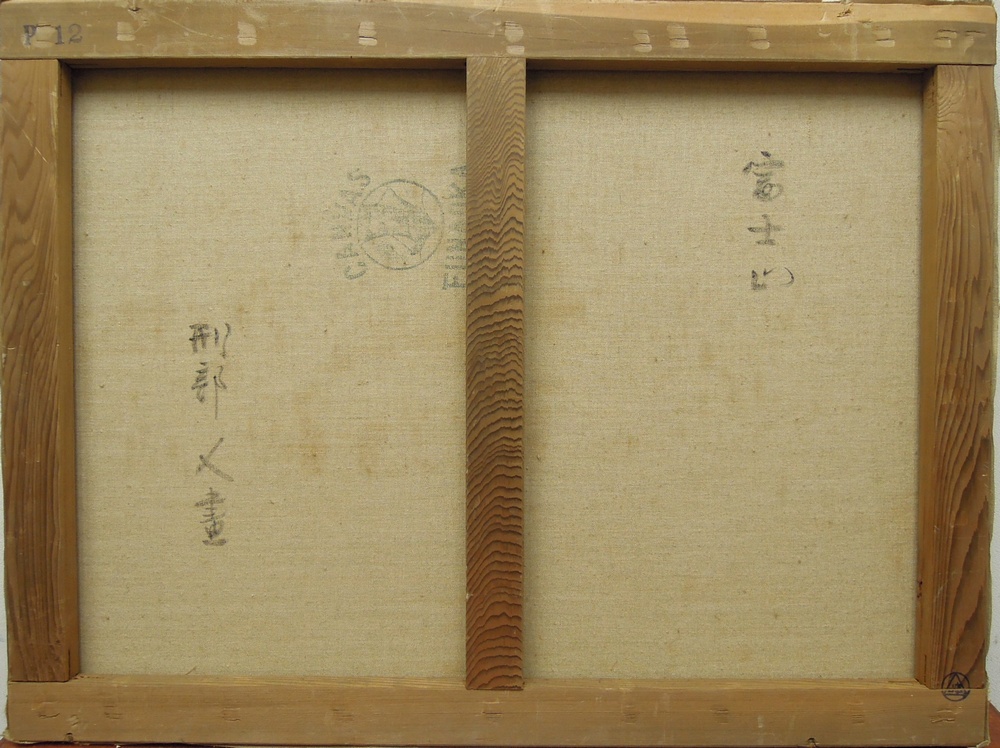 P 12
富士山
CANVAS
FUNAOKA
刑部人画